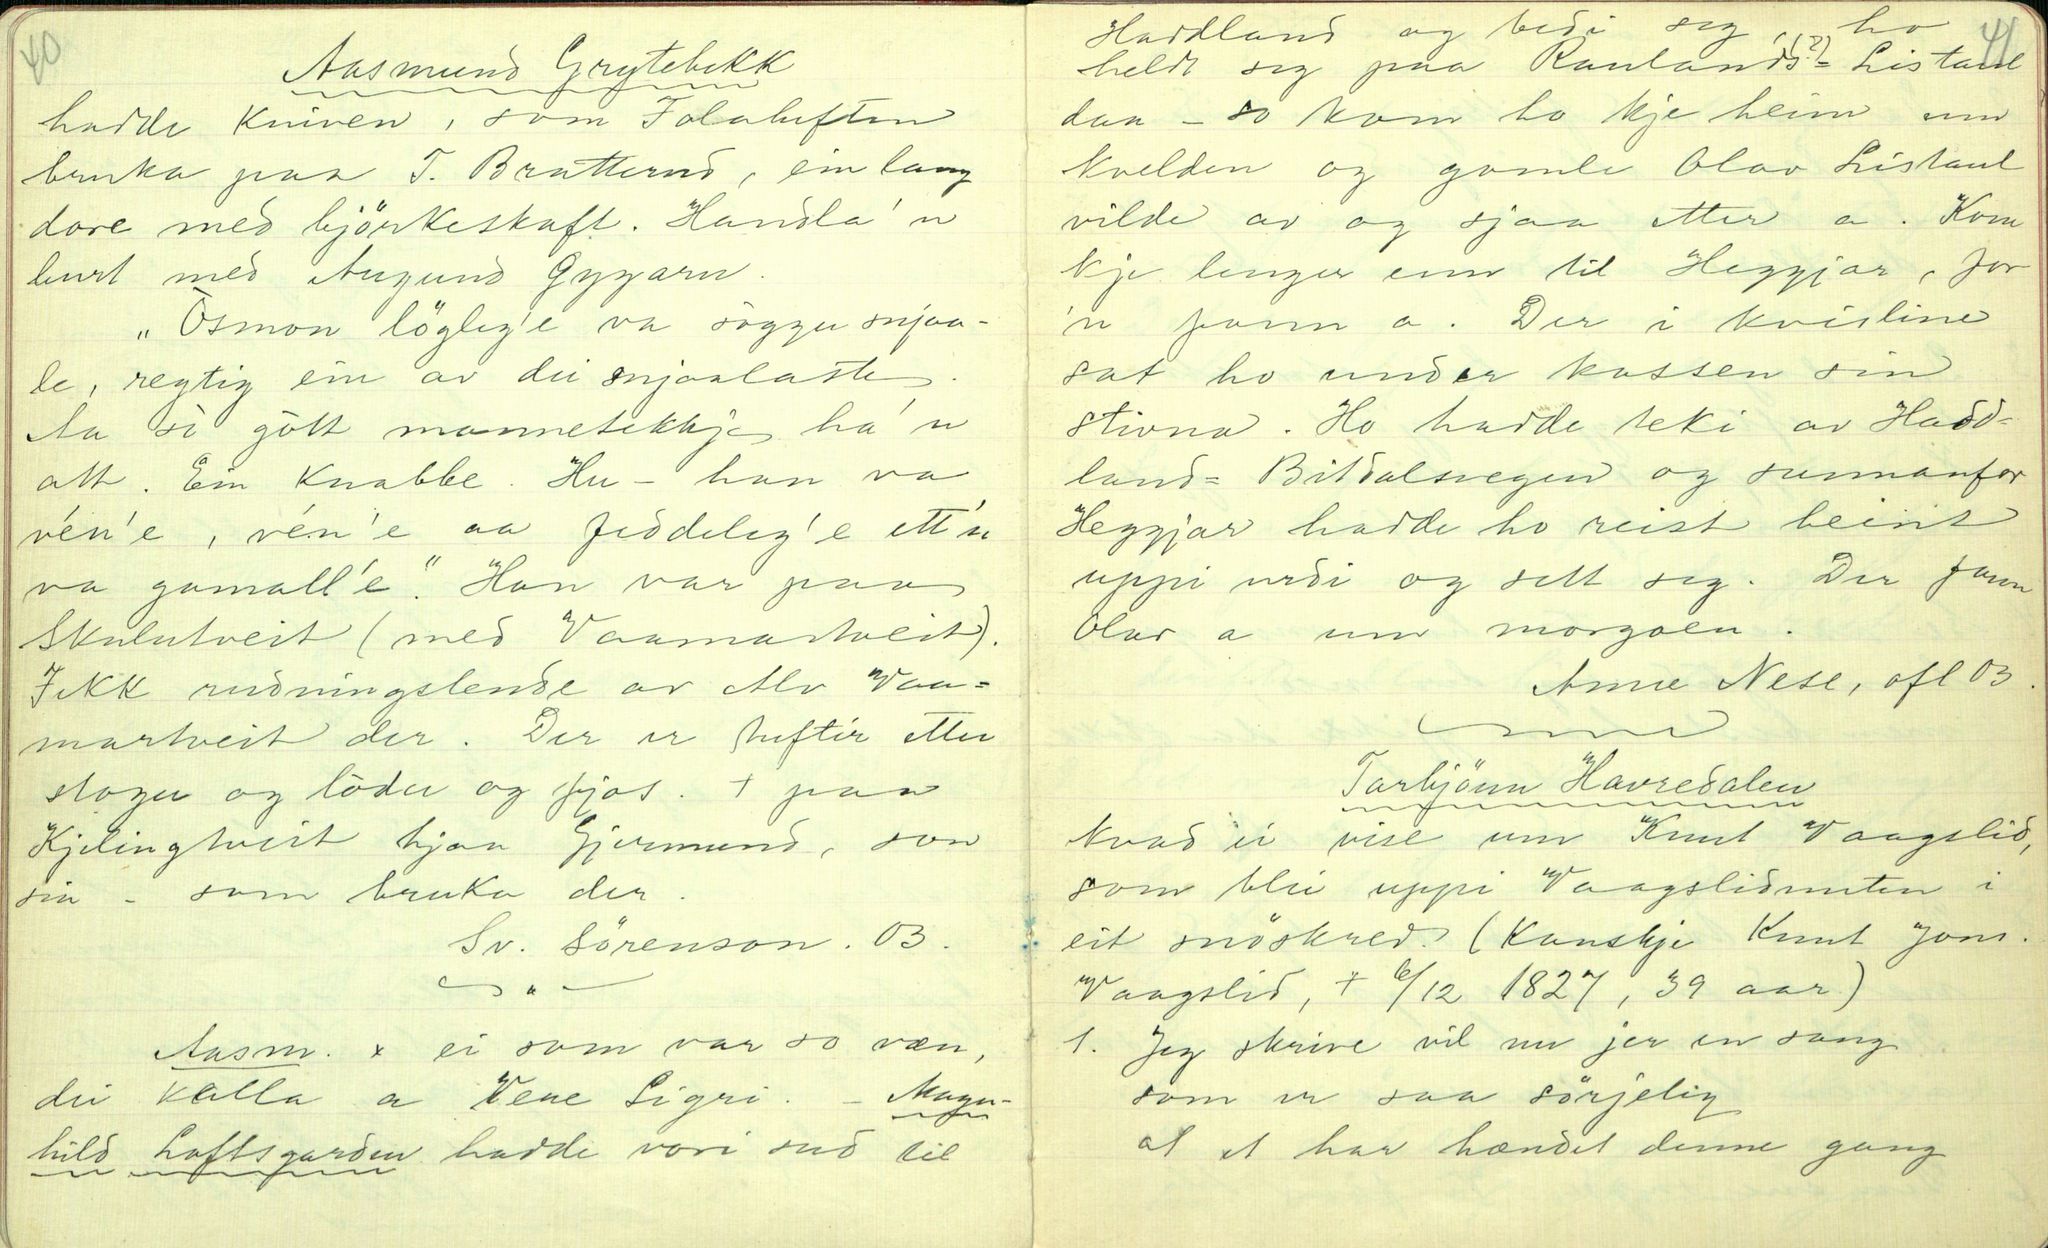 40
Aasmund Grytebekk
hadde kniven, som Folaheften
bruka paa T. Bratterud, ein lang
dore med björkeskaft. Handla'n
burt med Augund Gygarn.
„Òsmon löglig'e va söggu snjaa-
le, regtig ein av dei snjaalaste.
Aa si gòtt mannetekkje ha'n
att. Ein Knabbe. Hu - han va
vén'e, vén'e aa feddeleg'e ett'n
va gamall'e". Han var paa
Skulutveit (med Vaamartveit).
Fekk rudningslende av Alv Vaa-
martveit der. Der er tuftir etter
stogu og lödu og fjos. † paa
Kjelingtveit hjaa Gjermund, son
sin - som bruka der.
Sv. Sörenson. 03.
Aasm. x ei som var so væn,
dei kalla a Vene Sigri. - Magn-
hild Loftsgarden hadde vori sud til
41
Haddland og bedi seg, ho
heldt seg paa Raulands(?)= Listaul
daa - so kom ho kje heim um
kvelden og gamle Olav Listaul
vilde av og sjaa etter a. Kom
kje lenger enn til Heggjar, for
'n fann a. Der i kvisline
sat ho under kassen sin
stivna. Ho hadde teki av Hadd=
land= Bitdalsvegen og sunnanfor
Heggjar hadde ho reist beint
uppi urdi og sett seg. Der fann
Olav a um morgoen.
Anne Nese, ofl 03.
Tarbjönn Havredalen
kvad ei vise um Knut Vaagslid,
som blei uppi Vaagslidnuten i
eit snöskred. (Kanskje Knut Jons.
Vaagslid, † 6/12 1827, 39 aar)
1. Jeg skrive vil nu jer en sang
som er saa sörjelig
at et har hændet denne gang